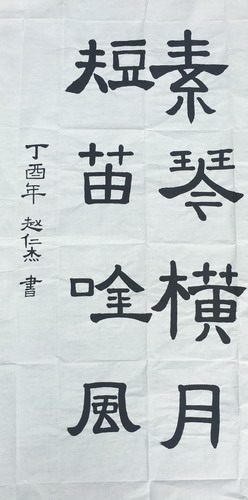 素琴横月
短苗唫風
丁酉年 赵仁杰 書